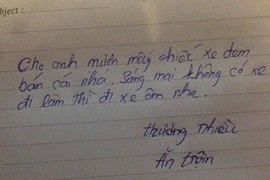 bject :
Cho anh mượn mấy chiếc xe đem
bán cái nha. Sáng mai không có xe
đi làm thì đi xe ôm nha.
thương nhiều
Ăn trộm